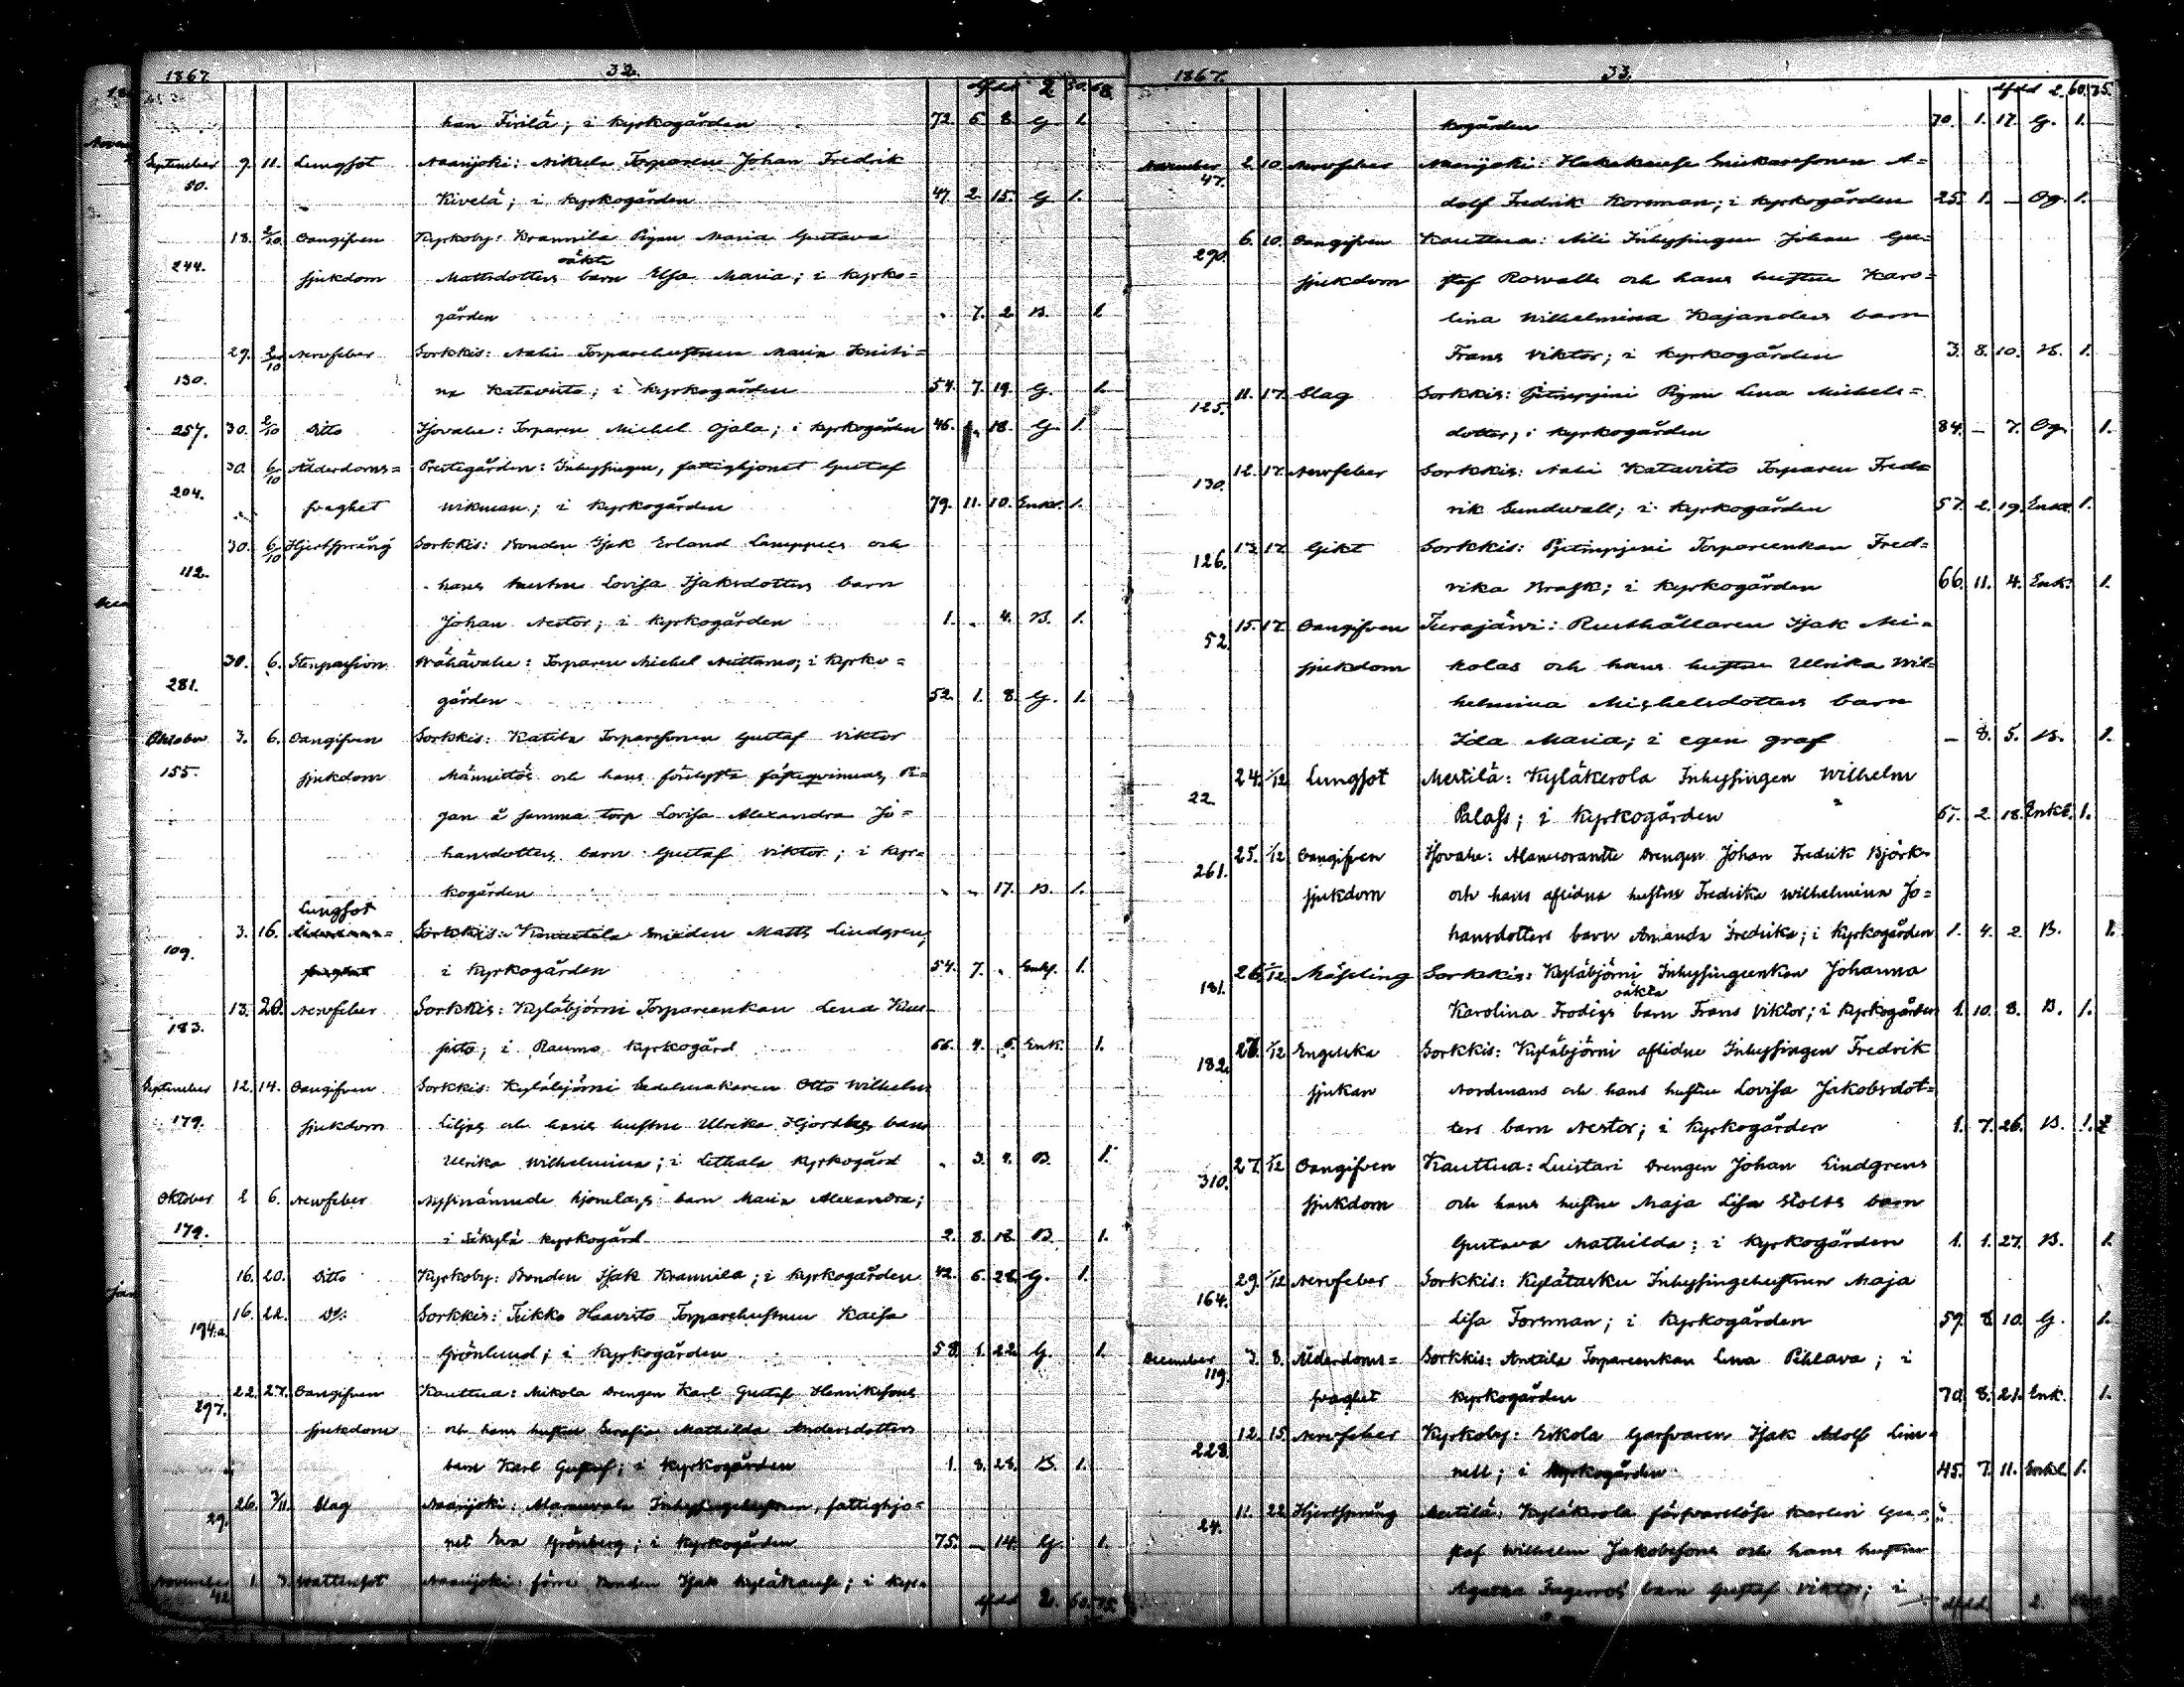 1867. 32.
Afdd 2 50. 68.
han Firilä; i kyrkogården 72. 6. 8. G. 1.
September 9. 11. Lungsot Naarijoki: Nikula Torparen Johan Fredrik
50. Kivelä; i kyrkogården 47. 2. 15. G. 1.
18. 2/10. Oangifven Kyrkoby: Krannila Pigan Maria Gustava
oäkta
244. sjukdom Mattsdotters barn Elsa Maria; i kyrko=
gården 7. 2. B. 1.
29. 2/10 Nervfeber Sorkkis: Torparehustrun Maria Kristi=
130. na Katavisto; i kyrkogården 54. 7. 19. G. 1.
257. 30. 2/10 Ditto Hjovahe: Torparen Michel Ojala; i kyrkogården 46. 18. G. 1.
30. 6/10 Ålderdoms= Prestegården: Inhysingen, fattighjonet Gustaf
204. svaghet Wikman; i kyrkogården 79. 11. 10. Enkl. 1.
30. 6/10 Hjertsprång Sorkkis: Bonden Isak Erland Lauppus och
112. hans hustru Lovisa Isaksdotters barn
Johan Nestor; i kyrkogården 1. 4. B. 1.
30. 6. Stenpassion Wähävahe: Torparen Michel Niittamo; i kyrko=
281. gården 52. 1. 8. G. 1.
Oktober 3. 6. Oangifven Sorkkis: Katila Torparesonen Gustaf Viktor
155. sjukdom Männistös och hans förlofvade fästeqvinnas, Pi=
gan å samma torp Lovisa Alexandra Jo=
hansdotters barn Gustaf Viktor; i kyr=
kogården 17. B. 1.
Lungsot
109. 3. 16. Sorkkis: Knuutila Smeden Matts Lindgren;
i kyrkogården 54. 7. Enkl. 1.
13. 20. Nervfeber Sorkkis: Kyläbjörni Torpareenkan Lena Kuu=
183. sisto; i Raumo kyrkogård 66. 4. 6. Enk. 1.
September 12. 14. Oangifven Sorkkis: Kyläbjörni Sadelmakaren Otto Wilhelm
179. sjukdom Liljas och hans hustru Ulrika Hjordbergs barn
Ulrika Wilhelmina; i Letthala kyrkogård 3. 9. B. 1.
Oktober 2 6. Nervfeber Nyssnämnde hjonelags barn Maria Alexandra;
179. i Säkylä kyrkogård 2. 8. 18. B. 1.
16. 20. Ditto Kyrkoby: Bonden Isak Krannila; i kyrkogården 42. 6. 22. G. 1.
194.a 16. 22. Do: Sorkkis: Tuikko Haavisto Torparehustrun Kaisa
Grönlund; i kyrkogården 58. 1. 22. G. 1.
22. 27. Oangifven Kauttua: Mikola Drengen Karl Gustaf Henrikssons
297. sjukdom och hans hustru Serafia Mathilda Andersdotters
barn Karl Gustaf; i kyrkogården 1. 8. 28. B. 1.
26. 3/11. Slag Naarijoki: Marauvala Inhysingehustrun, fattighjo=
29. net Eva Grönberg; i kyrkogården 75. — 14. G. 1.
November 1. 3. Wattusot Naarijoki: förre Bonden Isak Kyläkause; i kyr=
42. Afdd 2. 60. 75.
1867. 33.
Afdd 2. 60. 75.
kogården 70. 1. 17. G. 1.
November 2. 10. Nervfeber Naarijoki: Hakakause Snickaresonen A=
47. dolf Fredrik Korsman; i kyrkogården 25. 1. — Og. 1.
6. 10. Oangifven Kauttua: Nili Inhysingen Johan Gu=
290. sjukdom staf Rosvalls och hans hustru Karo=
lina Wilhelmina Kajanders barn
Frans Viktor; i kyrkogården 3. 8. 10. B. 1.
11. 17. Slag Sorkkis: Pitinpjeni Pigan Lena Michels=
125. dotter; i kyrkogården 84. — 7. Og. 1.
12. 17. Nervfeber Sorkkis: Katavisto Torparen Fred=
130. rik Sundvall; i kyrkogården 57. 2. 19. Enkl. 1.
13. 17. Gikt Sorkkis: Pitinpjeni Torpareenkan Fred=
126. rika Brask; i kyrkogården 66. 11. 4. Enk. 1.
15. 17. Oangifven Turajärvi: Rusthållaren Isak Mi=
52. sjukdom kolas och hans hustru Ulrika Wil=
helmina Michelsdotters barn
Ida Maria; i egen graf — 8. 5. B. 1.
24. 1/12 Lungsot Mestilä: Kyläkerola Inhysingen Wilhelm
22. Palass; i kyrkogården 2. 18. Enkl. 1.
25. 1/12 Oangifven Hjovahe: Alanuorantte Drengen Johan Fredrik Björks
261. sjukdom och hans aflidna hustrus Fredrika Wilhelmina Jo=
hansdotters barn Amanda Fredrika; i kyrkogården 1. 4. 2. B. 1.
26. 1/12 Mässling Sorkkis: Kyläbjörni Inhysingeenkan Johanna
oäkta
181. Karolina Frodigs barn Frans Viktor; i kyrkogården 1. 10. 8. B. 1.
1/12 Engelska Sorkkis: Kyläbjörni aflidne Inhysingen Fredrik
182. sjukan Nordmans och hans hustru Lovisa Jakobsdot=
ters barn Nestor; i kyrkogården 1. 7. 26. B. 1.
27. 1/12 Oangifven Kauttua: Luistari Drengen Johan Lindgrens
310. sjukdom och hans hustru Maja Lisa Stolts barn
Gustava Mathilda; i kyrkogården 1. 1. 27. B. 1.
29. 1/12 Nervfeber Sorkkis: Kylätasku Inhysingehustrun Maja
164. Lisa Forsman; i kyrkogården 59. 8. 10. G. 1.
December 3. 8. Ålderdoms= Sorkkis: Anttila Torpareenkan Lena Pihlava; i
119. svaghet kyrkogården 70. 8. 21. Enk. 1.
12. 15. Nervfeber Kyrkoby: Erkola Garfvaren Isak Adolf Lin=
228. nell; i kyrkogården 45. 7. 11. Enkl. 1.
11. 22. Hjertsprång Mestilä: Kyläkerola försvarslöse Karlen Gu=
24. staf Wilhelm Jakobssons och hans hustru
Agatha Ingeroos barn Gustaf Viktor; i
Afdd. 2.